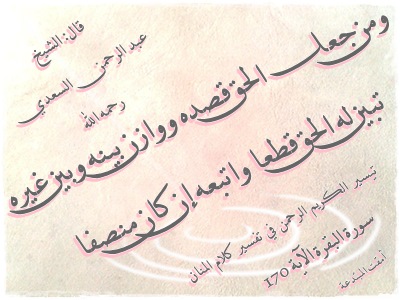 قال: الشيخ
عبد الرحمن السعدي
رحمه الله
ومن جعل الحق قصده ووازن بينه وبين غيره
تبين له الحق قطعا واتبعه إن كان منصفا
تيسير الكريم الرحمن في تفسير كلام المنان
سورة البقرة الآية 170